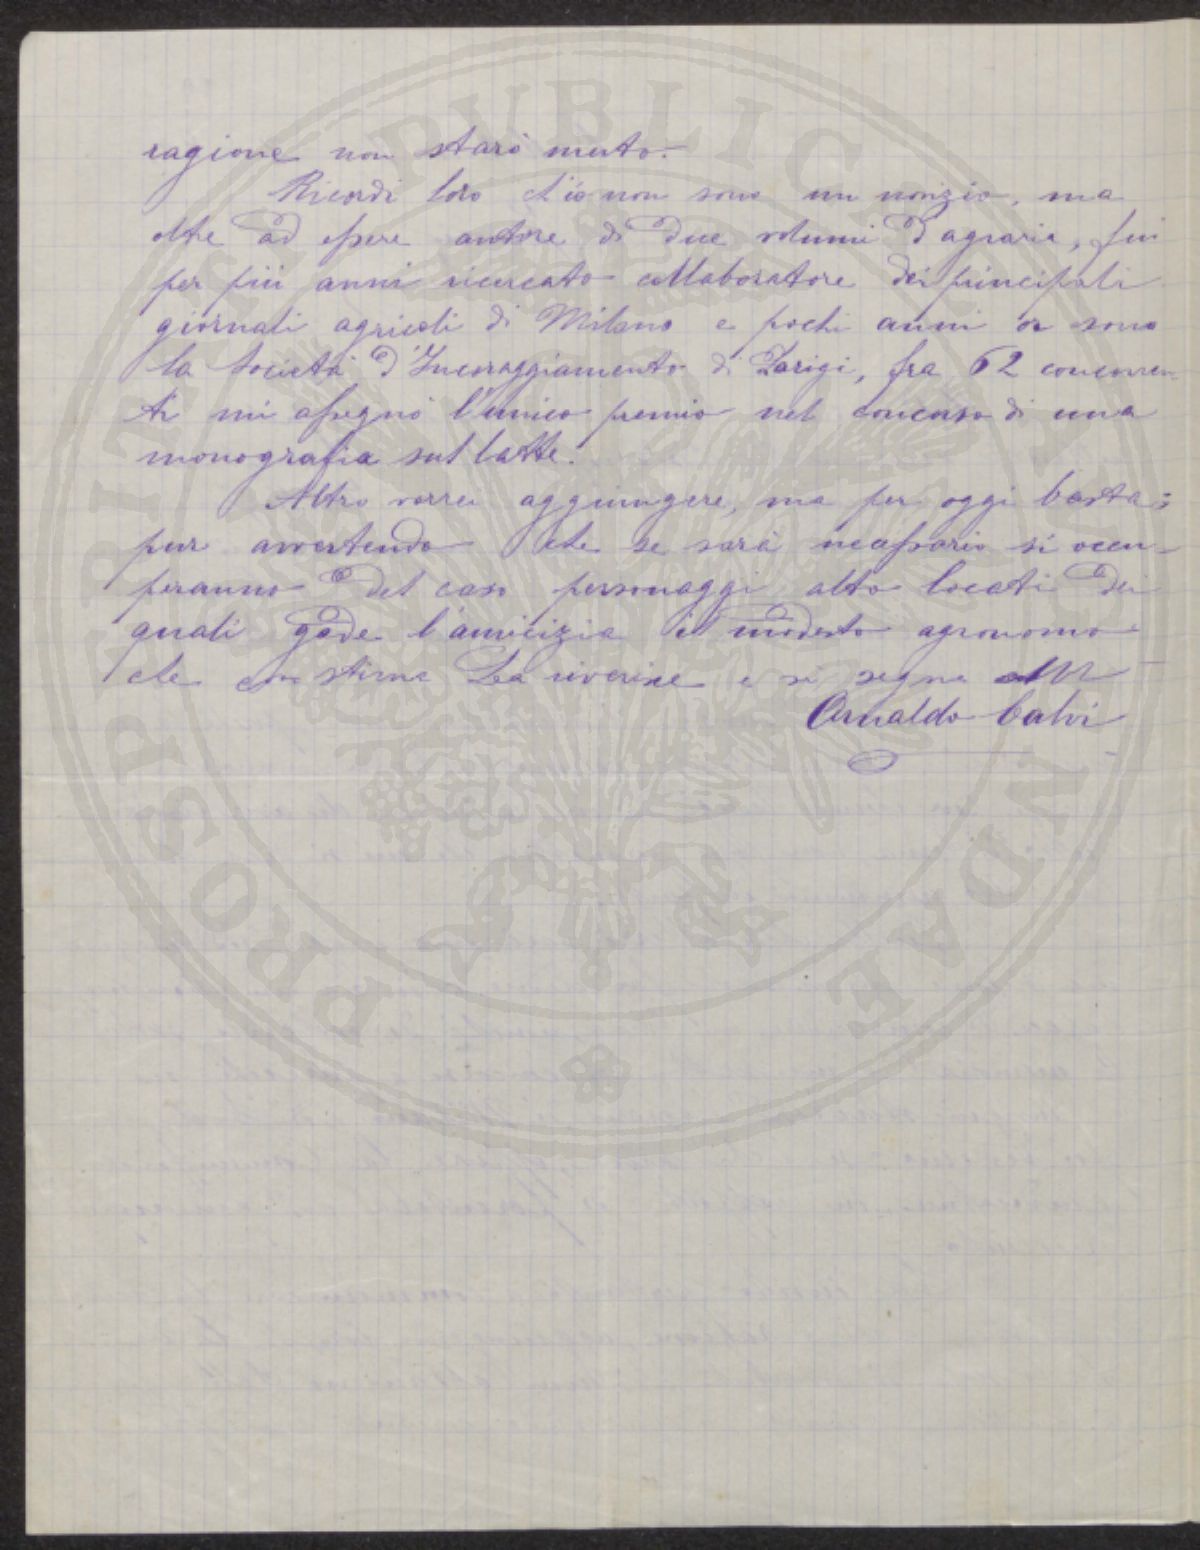 ragione non starò muto.
Ricordi loro ch'io non sono un novizio, ma
oltre ad essere autore di due volumi d'agraria, fui
per più anni ricercato collaboratore dei principali
giornali agricoli di Milano e pochi anni or sono
la Società d'Incoraggiamento di Parigi, fra 62 concorren-
ti mi assegnò l'unico premio nel concorso di una
monografia sul latte.
Altro vorrei aggiungere, ma per oggi basta;
pur avvertendo che se sarà necessario si occu-
peranno del caso personaggi alto locati dei
quali gode l'amicizia il modesto agronomo
che con stima La riverisce e si segna
Arnaldo Calvi
PUBLICAE
PROSPERITATI
AUGENDAE